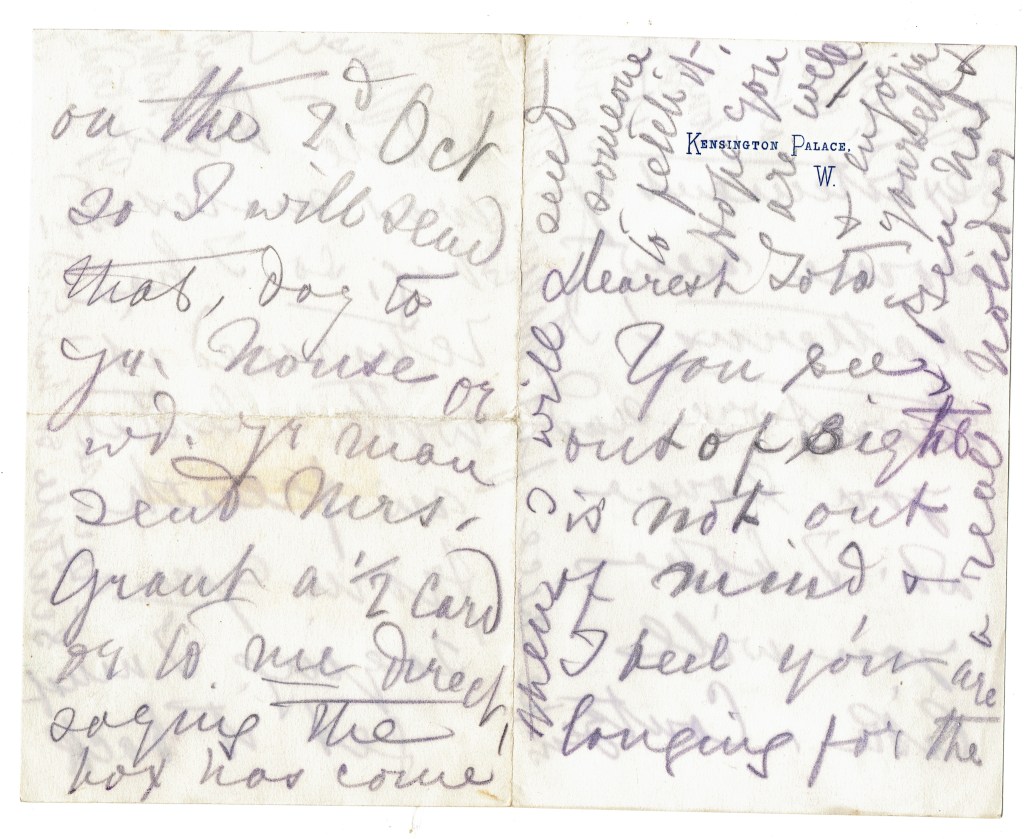 on the 2d. Oct
so I will send
that, day to
yr. House or
wd. yr man
send Mrs.
Grant a 1/2 card
or to me direct,
saying the
box has come
Kensington Palace,
W.
Dearest Toto
You see
out of sight
is not out
of mind &
I feel you are
longing for the
then I will send
someone
to fetch it.
Hope you
are well
& enjoying
yourself
a real holiday